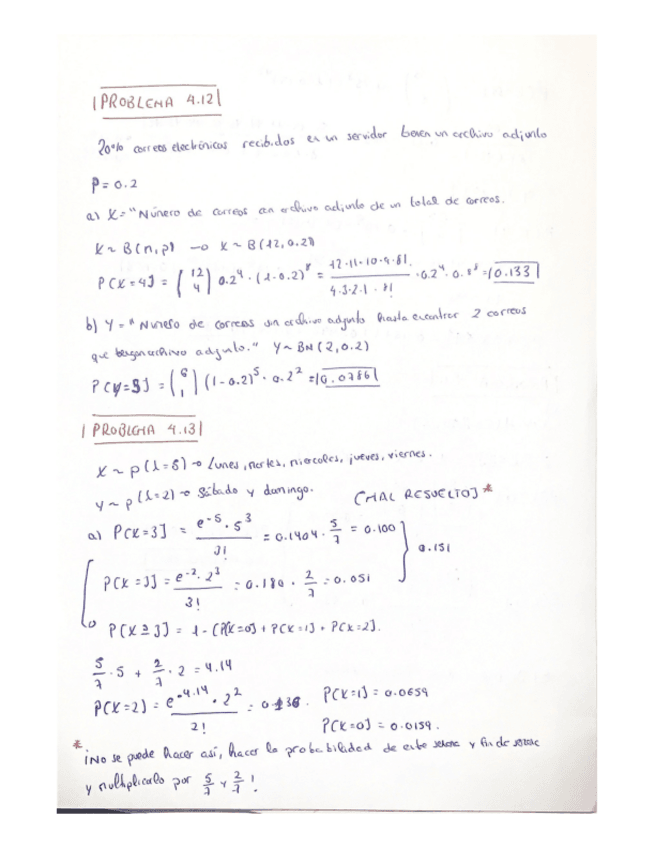 PROBLEMA 4.12
20% correos electrónicos recibidos en un servidor tienen un archivo adjunto
P = 0.2
a) X = "Número de correos con archivo adjunto de un total de correos.
X ~ B(n, p) → X ~ B(12, 0.2)
P[X = 4] = (12 4) 0.2⁴ · (1 - 0.2)⁸ = 12·11·10·9·8! / 4·3·2·1·8! · 0.2⁴ · 0.8⁸ = 0.133
b) Y = "Número de correos sin archivo adjunto hasta encontrar 2 correos
que tengan archivo adjunto." Y ~ BN(2, 0.2)
P[Y = 5] = (6 1) (1 - 0.2)⁵ · 0.2² = 0.0786
PROBLEMA 4.13
X ~ p(λ = 5) → Lunes, martes, miercoles, jueves, viernes.
Y ~ p(λ = 2) → Sábado y domingo.
[MAL RESUELTO] *
a) P[X = 3] = e⁻⁵ · 5³ / 3! = 0.1404 · 5/7 = 0.100
0.151
P[X = 3] = e⁻² · 2³ / 3! = 0.180 · 2/7 = 0.051
P[X ≥ 3] = 1 - (P[X = 0] + P[X = 1] + P[X = 2].
5/7 · 5 + 2/7 · 2 = 4.14
P[X = 2] = e⁻⁴·¹⁴ · 2² / 2! = 0.136 P[X = 1] = 0.0659
P[X = 0] = 0.0159.
* ¡No se puede hacer así, hacer la probabilidad de entre semana y fin de semana
y multiplicarlo por 5/7 y 2/7 !